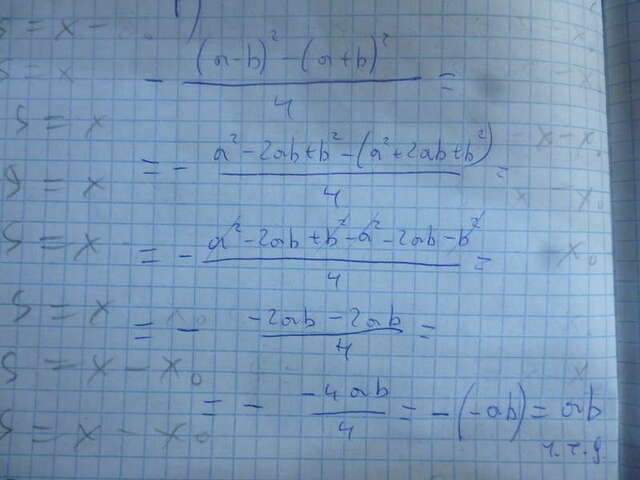 - \frac{(a-b)^2 - (a+b)^2}{4} =
= - \frac{a^2 - 2ab + b^2 - (a^2 + 2ab + b^2)}{4} =
= - \frac{a^2 - 2ab + b^2 - a^2 - 2ab - b^2}{4} =
= - \frac{-2ab - 2ab}{4} =
= - \frac{-4ab}{4} = -(-ab) = ab
ч.т.д.